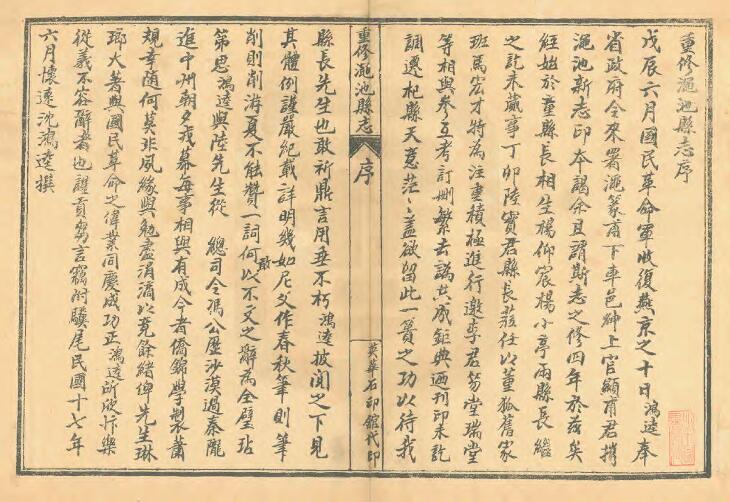 重修澠池縣志序
戊辰六月國民革命軍收復燕京之十日鴻逵奉
省政府令來署澠篆甫下車邑紳上官顯甫君攜
澠池新志印本謁余且謂斯志之修四年於茲矣
經始於董縣長相生楊仰宸楊小亭兩縣長繼
之訖未蕆事丁卯陸賓君縣長蒞任以董狐舊家
班馬宏才特為注重積極進行邀李君芴堂瑞堂
等相與參互考訂刪繁去譌共成鉅典迺刊印未訖
調遷杞縣天意茫〻蓋欲留此一簣之功以待我
重修澠池縣志
序
英華石印館代印
縣長先生也敢祈鼎言用垂不朽鴻逵披閱之下見
其體例謹嚴紀載詳明幾如尼父作春秋筆則筆
削則削游夏不能贊一詞何敢以不文之辭為全璧玷
第思鴻逵與陸先生從 總司令馮公歷沙漠過秦隴
進中州朝夕戎幕每事相與有成今者僑錦學製蕭
規幸隨何莫非夙緣與勉盡涓滴以竟餘緒俾先生琳
瑯大著與國民革命之偉業同慶成功正鴻逵所歡忭樂
從義不容辭者也謹貢芻言竊附驥尾民國十七年
六月懷遠沈鴻逵撰